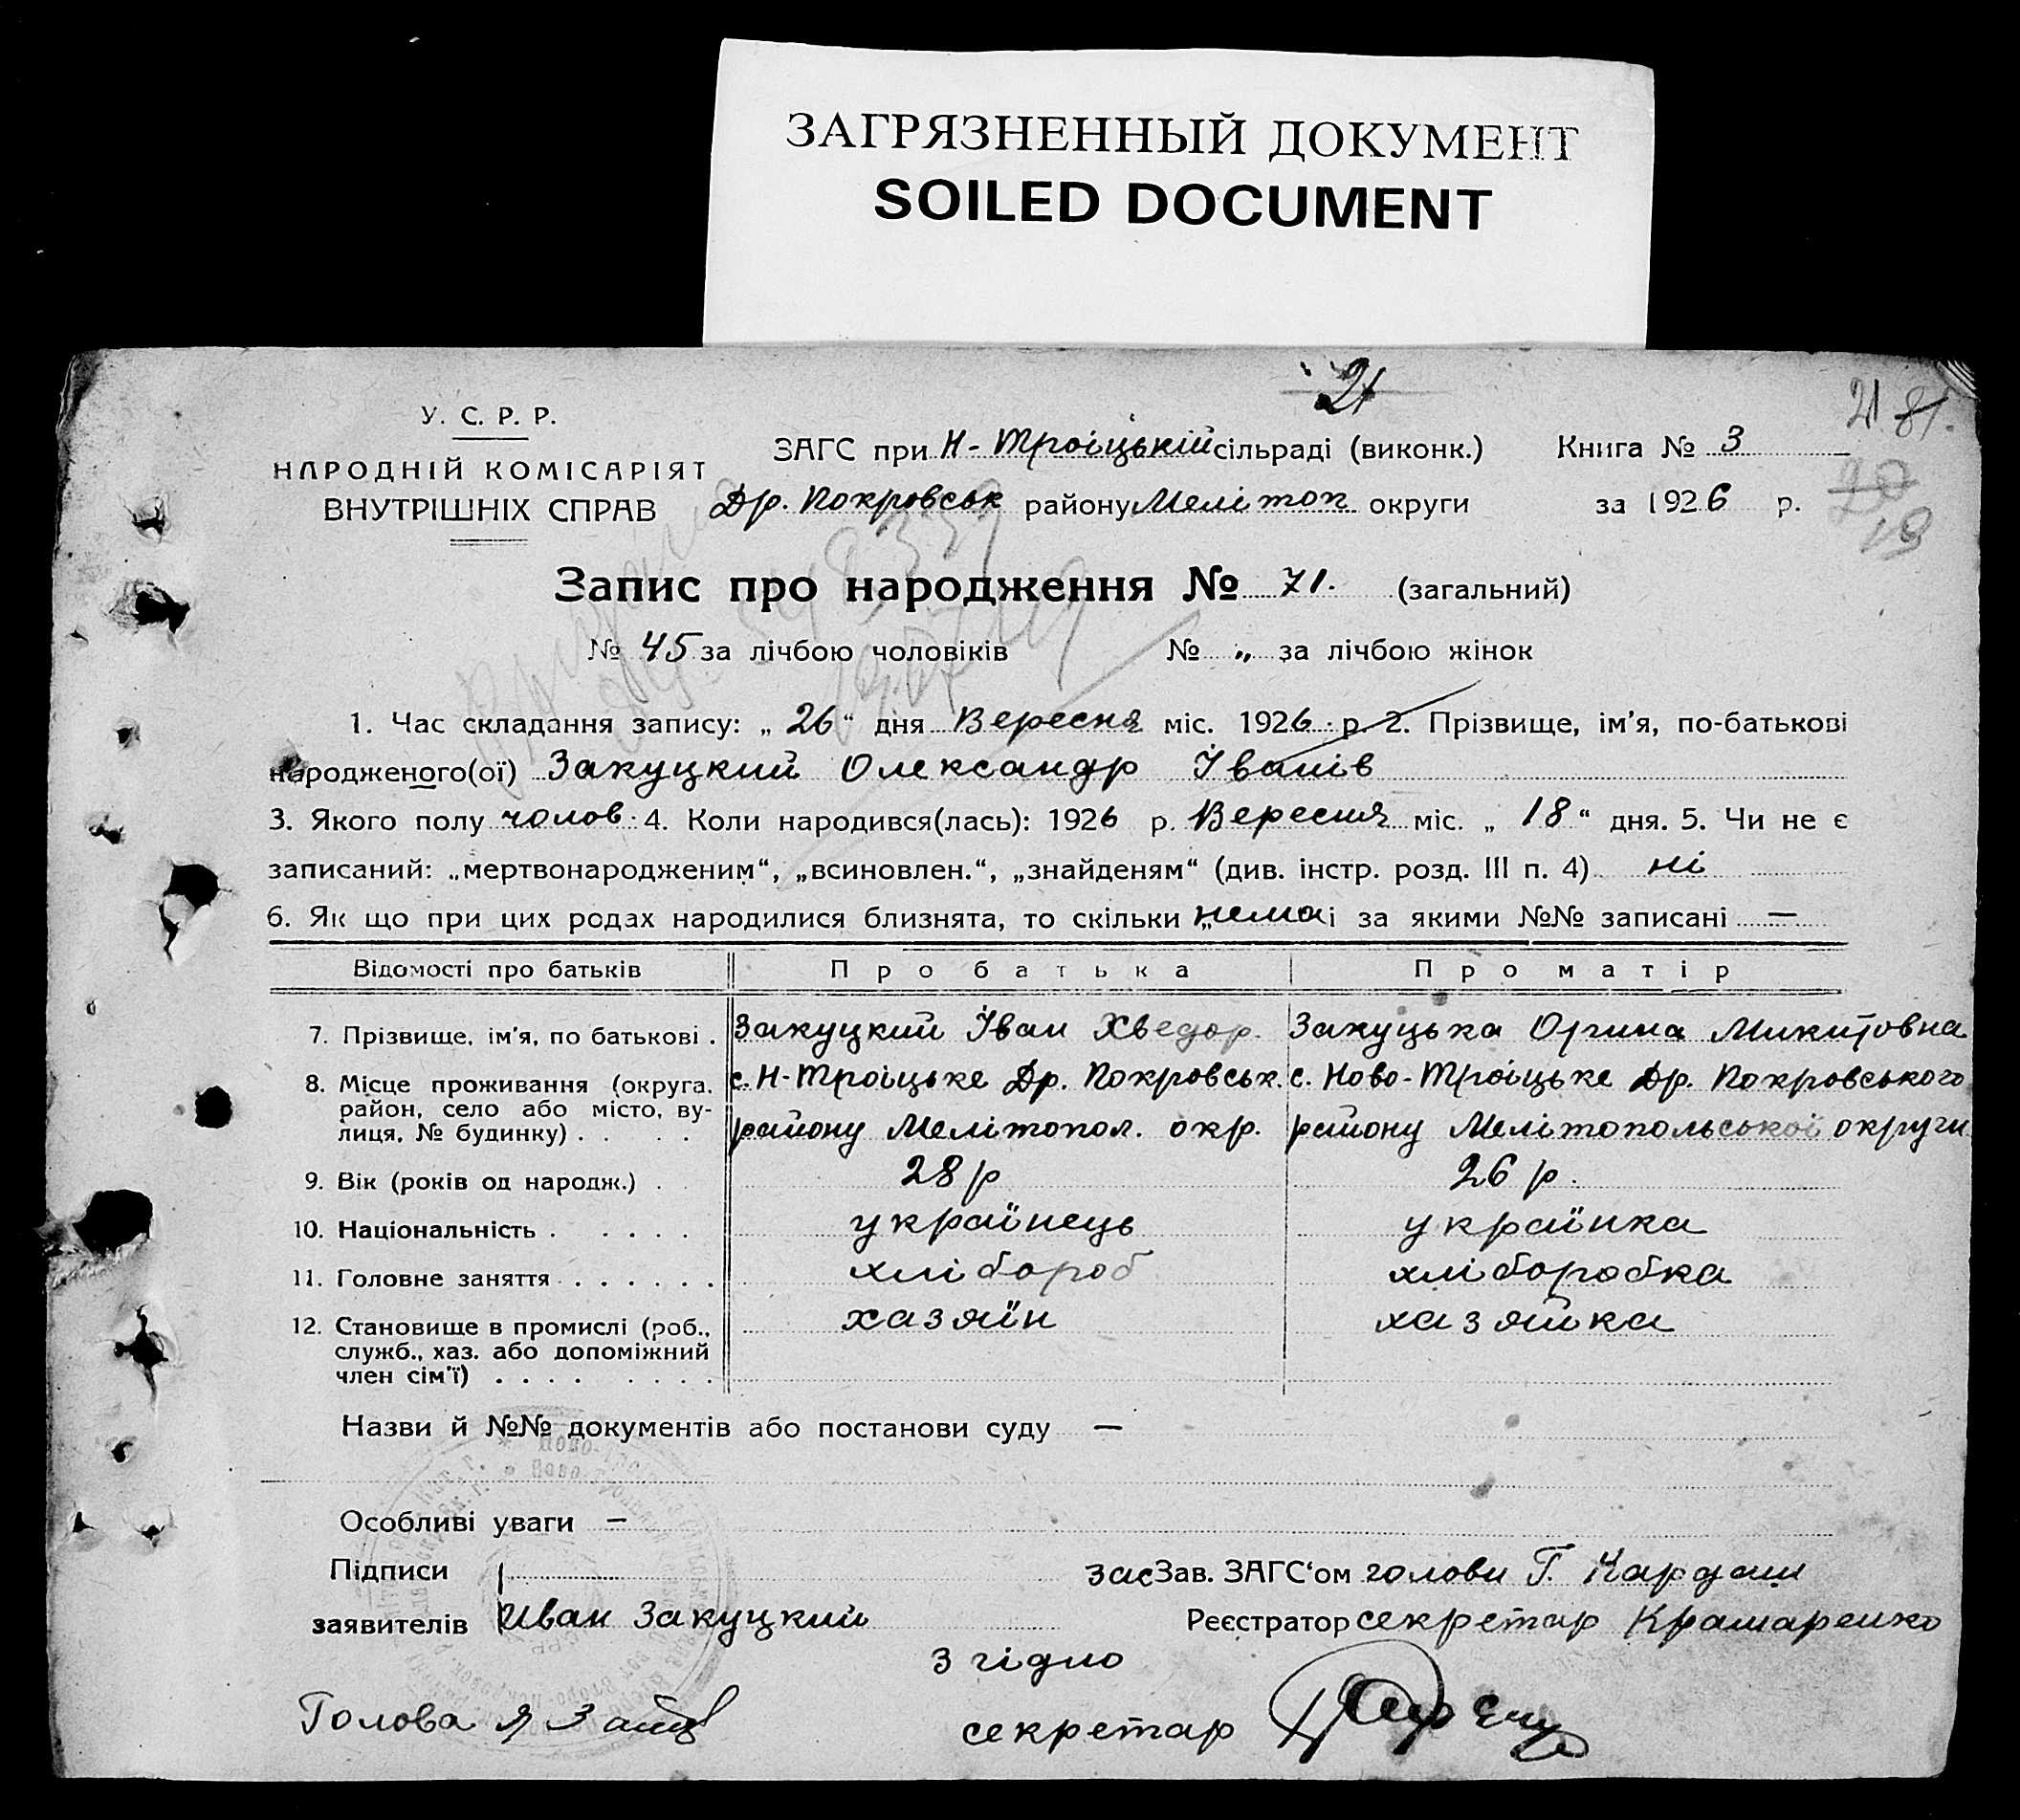 ЗАГРЯЗНЕННЫЙ ДОКУМЕНТ
SOILED DOCUMENT
21
21 81.
У. С. Р. Р.
НАРОДНІЙ КОМІСАРІЯТ
ВНУТРІШНІХ СПРАВ
ЗАГС при Н-Троіцькій сільраді (виконк.) Книга № 3
Др. Покровськ району Меліtоп округи за 1926 р.
19
Запис про народження № 71. (загальний)
№ 45 за лічбою чоловіків № „ за лічбою жінок
1. Час складання запису: „26“ дня Вересня міс. 1926 р. 2. Прізвище, ім’я, по-батькові
народженого(ої) Закуцкий Олександр Іванів
3. Якого полу чолов. 4. Коли народився(лась): 1926 р. Вересня міс. „18“ дня. 5. Чи не є
записаний: „мертвонародженим“, „всиновлен.“, „знайденям“ (див. інстр. розд. III п. 4) ні
6. Як що при цих родах народилися близнята, то скільки „нема і за якими №№ записані —
Відомості про батьків Про батька Про матір
7. Прізвище, ім’я, по батькові . Закуцкий Іван Хведор. Закуцька Орина Микитовна
8. Місце проживання (округа, с. Н-Троіцьке Др. Покровськ. с. Ново-Троіцьке Др. Покровського
район, село або місто, ву-
лиця, № будинку) . . . . району Мелітопол. окр. району Мелітопольської округи
9. Вік (років од народж.) . 28 р 26 р.
10. Національність . . . . . українець українка
11. Головне заняття . . . . . . хлібороб хліборобка
12. Становище в промислі (роб., хазяїн хазяйка
служб., хаз. або допоміжний
член сім’ї) . . . . . . . .
Назви й №№ документів або постанови суду —
Особливі уваги —
Підписи зас Зав. ЗАГС‘ом голови Г. Кардаш
заявителів Иван Закуцкий Реєстратор секретар Крамаренко
З гідно
Голова секретар